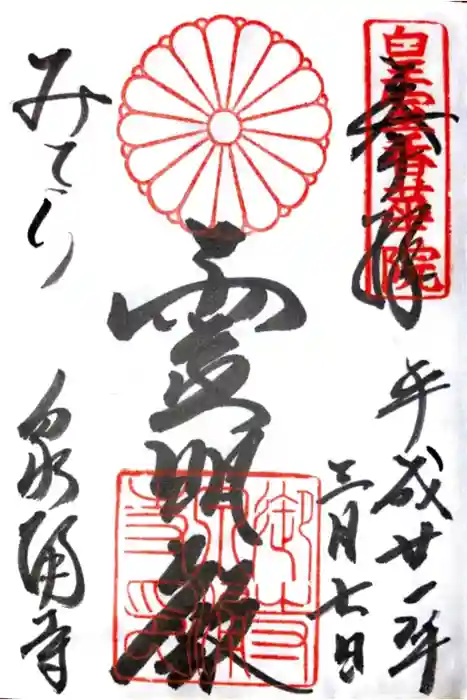 皇室香華院
奉拝
平成廿一年
三月七日
霊明殿
みてら
泉涌寺